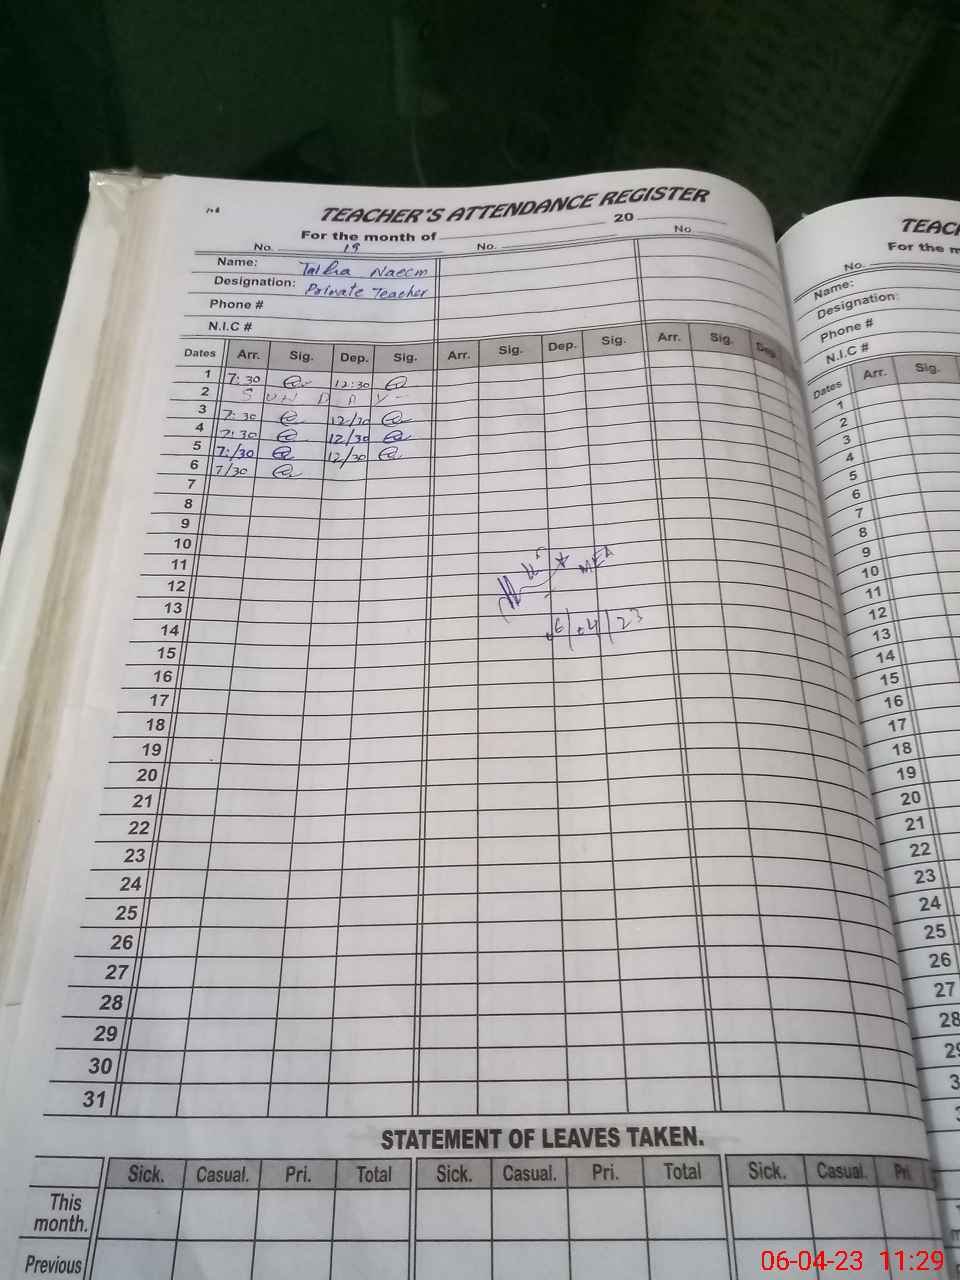 TEACHER'S ATTENDANCE REGISTER
For the month of 20
No. 19 No. No.
Name: Talha Naeem
Designation: Private Teacher
Phone #
N.I.C #
Dates Arr. Sig. Dep. Sig. Arr. Sig. Dep. Sig. Arr. Sig. Dep.
1 7:30 12:30
2 S U N D A Y
3 7:30 12/30
4 7:30 12/30
5 7:/30 12/30
6 7/30
7
8
9
10
11
12 MEA
13
14 6/04/23
15
16
17
18
19
20
21
22
23
24
25
26
27
28
29
30
31
STATEMENT OF LEAVES TAKEN.
Sick. Casual. Pri. Total Sick. Casual. Pri. Total Sick. Casual. Pri.
This month.
Previous
TEAC
For the m
No.
Name:
Designation:
Phone #
N.I.C #
Dates Arr. Sig.
1
2
3
4
5
6
7
8
9
10
11
12
13
14
15
16
17
18
19
20
21
22
23
24
25
26
27
28
06-04-23 11:29